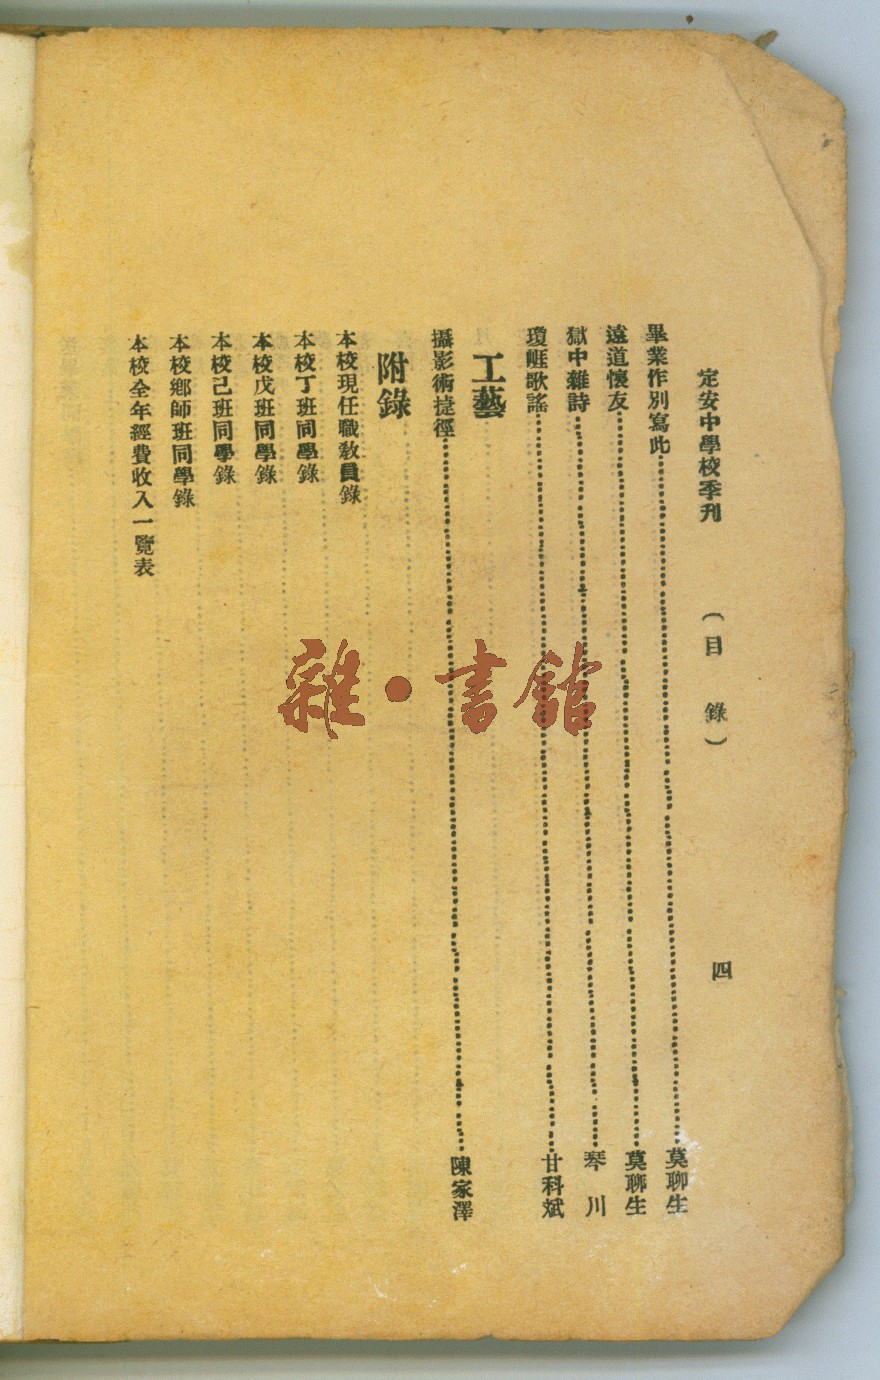 定安中學校季刊 （目錄） 四
畢業作別寫此 莫聊生
遠道懷友 莫聊生
獄中雜詩 琴川
瓊崕歌謠 甘科斌
工藝
攝影術捷徑 陳家澤
附錄
本校現任職教員錄
本校丁班同學錄
本校戊班同學錄
本校己班同學錄
本校鄉師班同學錄
本校全年經費收入一覽表
雜·書館